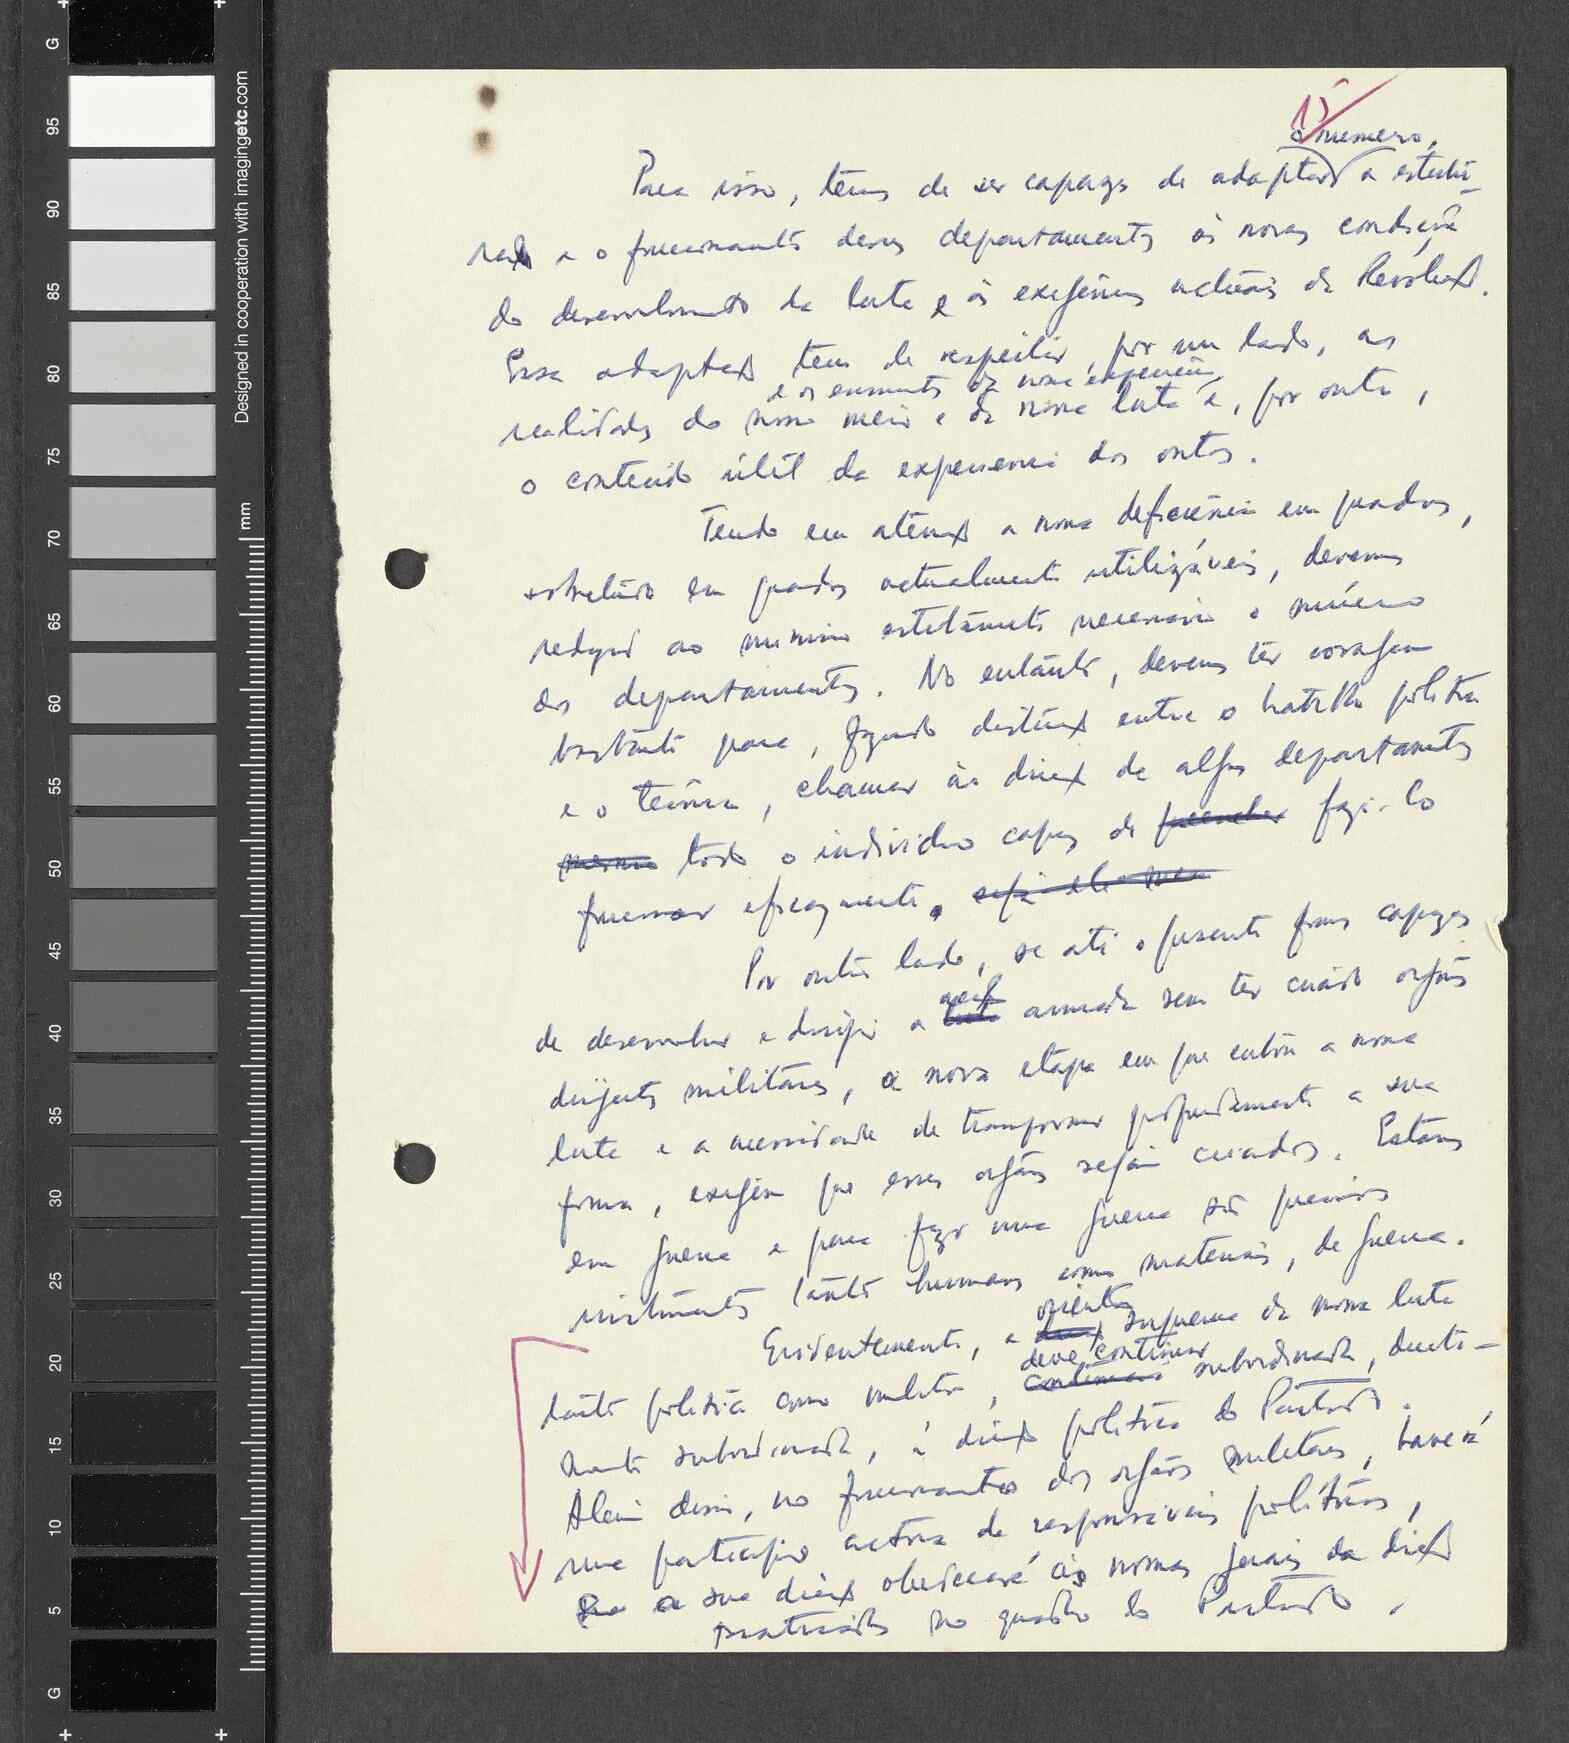 15
o número,
Para isso, temos de ser capazes de adaptar a estrutu-
ra e o funcionamento desses departamentos às novas condições
do desenvolvimento da luta e às exigências actuais da Revolução.
Essa adaptação tem de respeitar, por um lado, as
e os ensinamentos da nossa experiência
realidades do nosso meio e da nossa luta e, por outro,
o conteúdo útil da experiência dos outros.
Tendo em atenção a nossa deficiência em quadros,
sobretudo em quadros actualmente utilizáveis, devemos
reduzir ao mínimo estritamente necessário o número
dos departamentos. No entanto, devemos ter coragem
bastante para, fazendo distinção entre o trabalho político
e o técnico, chamar às direcções de alguns departamentos
mesmo todo o indivíduo capaz de preencher fazê-lo
funcionar eficazmente. seja ele mem
Por outro lado, se até o presente fomos capazes
acção
de desenvolver e dirigir a luta armada sem ter criado orgãos
dirigentes militares, a nova etapa em que entrou a nossa
luta e a necessidade de transformar profundamente a sua
forma, exigem que esses orgãos sejam criados. Estamos
em guerra e para fazer uma guerra são precisos
instrumentos tanto humanos como materiais, de guerra.
orientação
Evidentemente, a direcção suprema da nossa luta
deve continuar
tanto política como militar, continuará subordinada, directa-
mente subordinada, à direcção política do Partido.
Além disso, no funcionamento dos orgãos militares, haverá
uma participação activa de responsáveis políticos,
e a sua direcção obedecerá às normas gerais da direcção
praticadas no quadro do Partido.